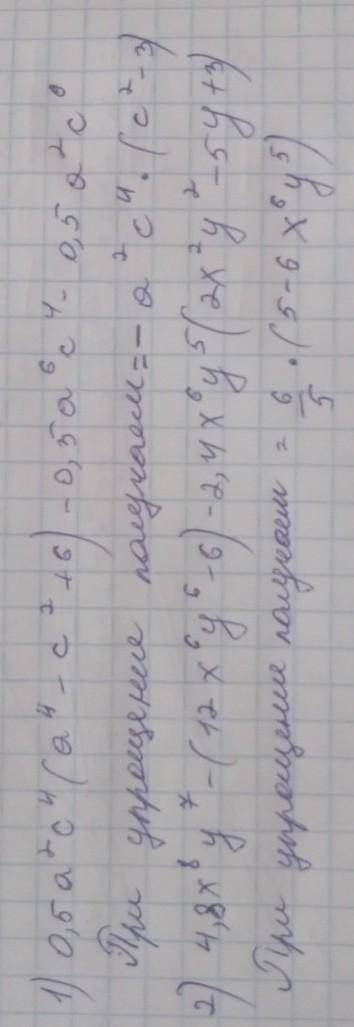 1) 0,5a²c⁴(a⁴-c²+6)-0,5a⁶c⁴-0,5a²c⁶
При упрощение получаем=-a²c⁴·(c²-3)
2) 4,8x⁸y⁷-(12x⁶y⁶-6)-2,4x⁶y⁵(2x²y²-5y+3)
При упрощение получаем = 6/5·(5-6x⁶y⁵)